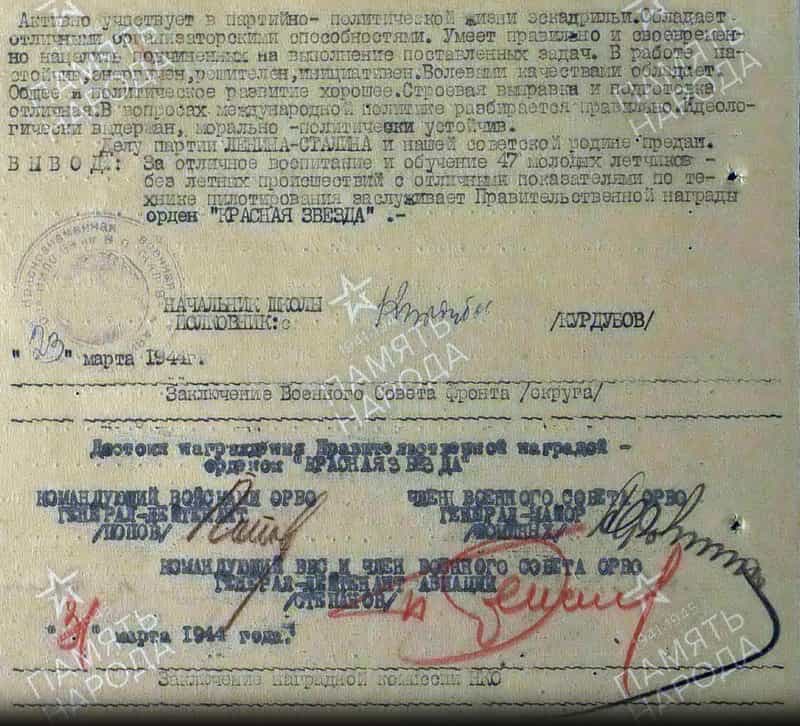 Активно участвует в партийно- политической жизни эскадрильи.Обладает
отличными организаторскими способностями. Умеет правильно и своевремен-
но нацелить подчиненных на выполнение поставленных задач. В работе на-
стойчив,энергичен,решителен,инициативен.Волевыми качествами обладает.
Общее и политическое развитие хорошее.Строевая выправка и подготовка
отличная.В вопросах международной политике разбирается правильно.Идеоло-
гически выдержан, морально -политически устойчив.
Делу партии ЛЕНИНА-СТАЛИНА и нашей советской родине предан.
ВЫВОД: За отличное воспитание и обучение 47 молодых летчиков -
без летных происшествий с отличными показателями по те-
хнике пилотирования заслуживает Правительственной награды
орден "КРАСНАЯ ЗВЕЗДА".-
НАЧАЛЬНИК ШКОЛЫ
ПОЛКОВНИК: /КУРДУБОВ/
"23" марта 1944г.
Заключение Военного Совета фронта /округа/
Достоин награждения Правительственной наградой -
орденом "КРАСНАЯ ЗВЕЗДА"
КОМАНДУЮЩИЙ ВОЙСКАМИ ОРВО ЧЛЕН ВОЕННОГО СОВЕТА ОРВО
ГЕНЕРАЛ-ЛЕЙТЕНАНТ ГЕНЕРАЛ-МАЙОР
/ПОПОВ/
КОМАНДУЮЩИЙ ВВС И ЧЛЕН ВОЕННОГО СОВЕТА ОРВО
ГЕНЕРАЛ-ЛЕЙТЕНАНТ АВИАЦИИ
/СТЕПАНОВ/
"31" марта 1944 года."
Заключение наградной комиссии НКО
ПАМЯТЬ
НАРОДА
1941-1945